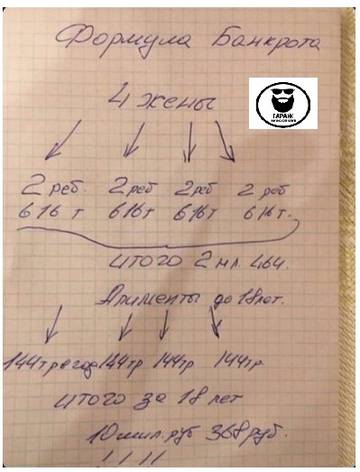 Формула Банкрота
4 жены
ГАРАЖ
2 реб. 2 реб 2 реб 2 реб
616 т 616 т 616 т 616 т.
итого 2 мл. 464.
Алименты до 18 лет.
144 тр год 144 тр 144 тр 144 тр
итого за 18 лет
10 мил. руб 368 руб.
! ! ! !